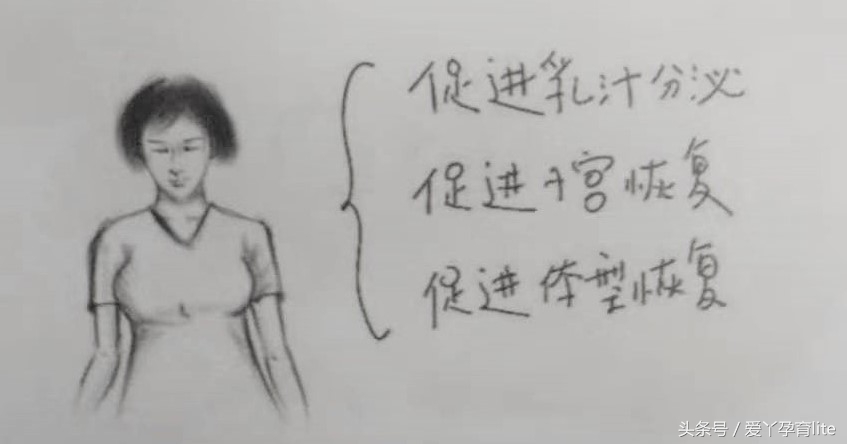 促进乳汁分泌
促进子宫恢复
促进体型恢复
头条号 / 爱丫孕育lite